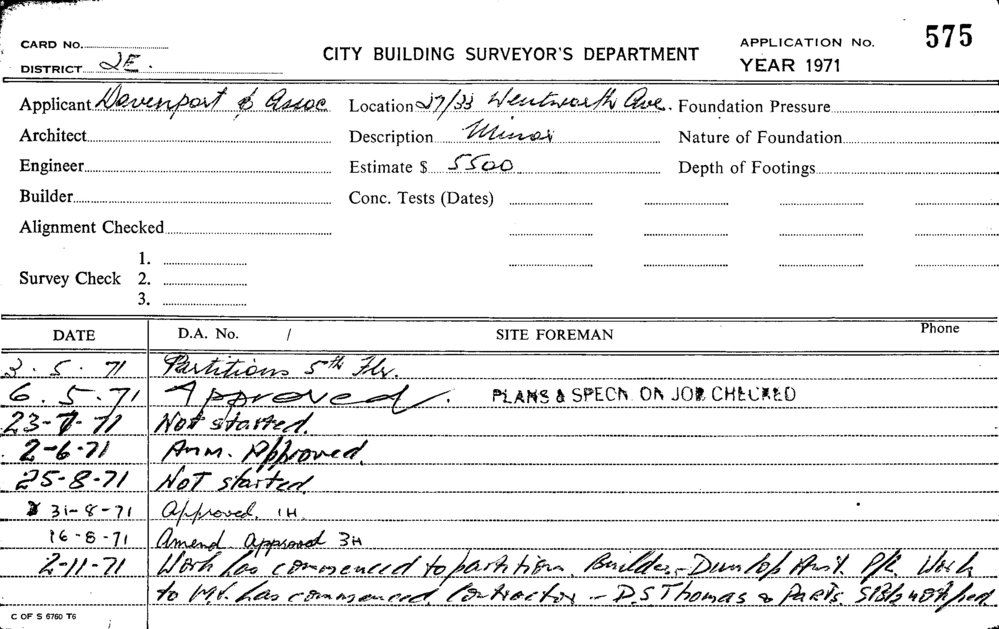 CARD No.
DISTRICT 2E.
CITY BUILDING SURVEYOR'S DEPARTMENT
APPLICATION No. 575
YEAR 1971
Applicant Davenport & Assoc Location 27/33 Wentworth Ave. Foundation Pressure
Architect Description Minor Nature of Foundation
Engineer Estimate $ 5500 Depth of Footings
Builder Conc. Tests (Dates)
Alignment Checked
1.
Survey Check 2.
3.
DATE D.A. No. / SITE FOREMAN Phone
3. 5. 71 Partitions 5th Flr.
6. 5. 71 Approved. PLANS & SPECN. ON JOB CHECKED
23-7-71 Not started.
2-6-71 Amm. Approved.
25-8-71 Not started.
31-8-71 Approved. 1H.
16-8-71 Amend approved 3H
2-11-71 Work has commenced to partition. Builder - Dunlop Aust. P/L. Work
to has commenced. Contractor - D.S Thomas & Parts.
C OF S 6760 T6